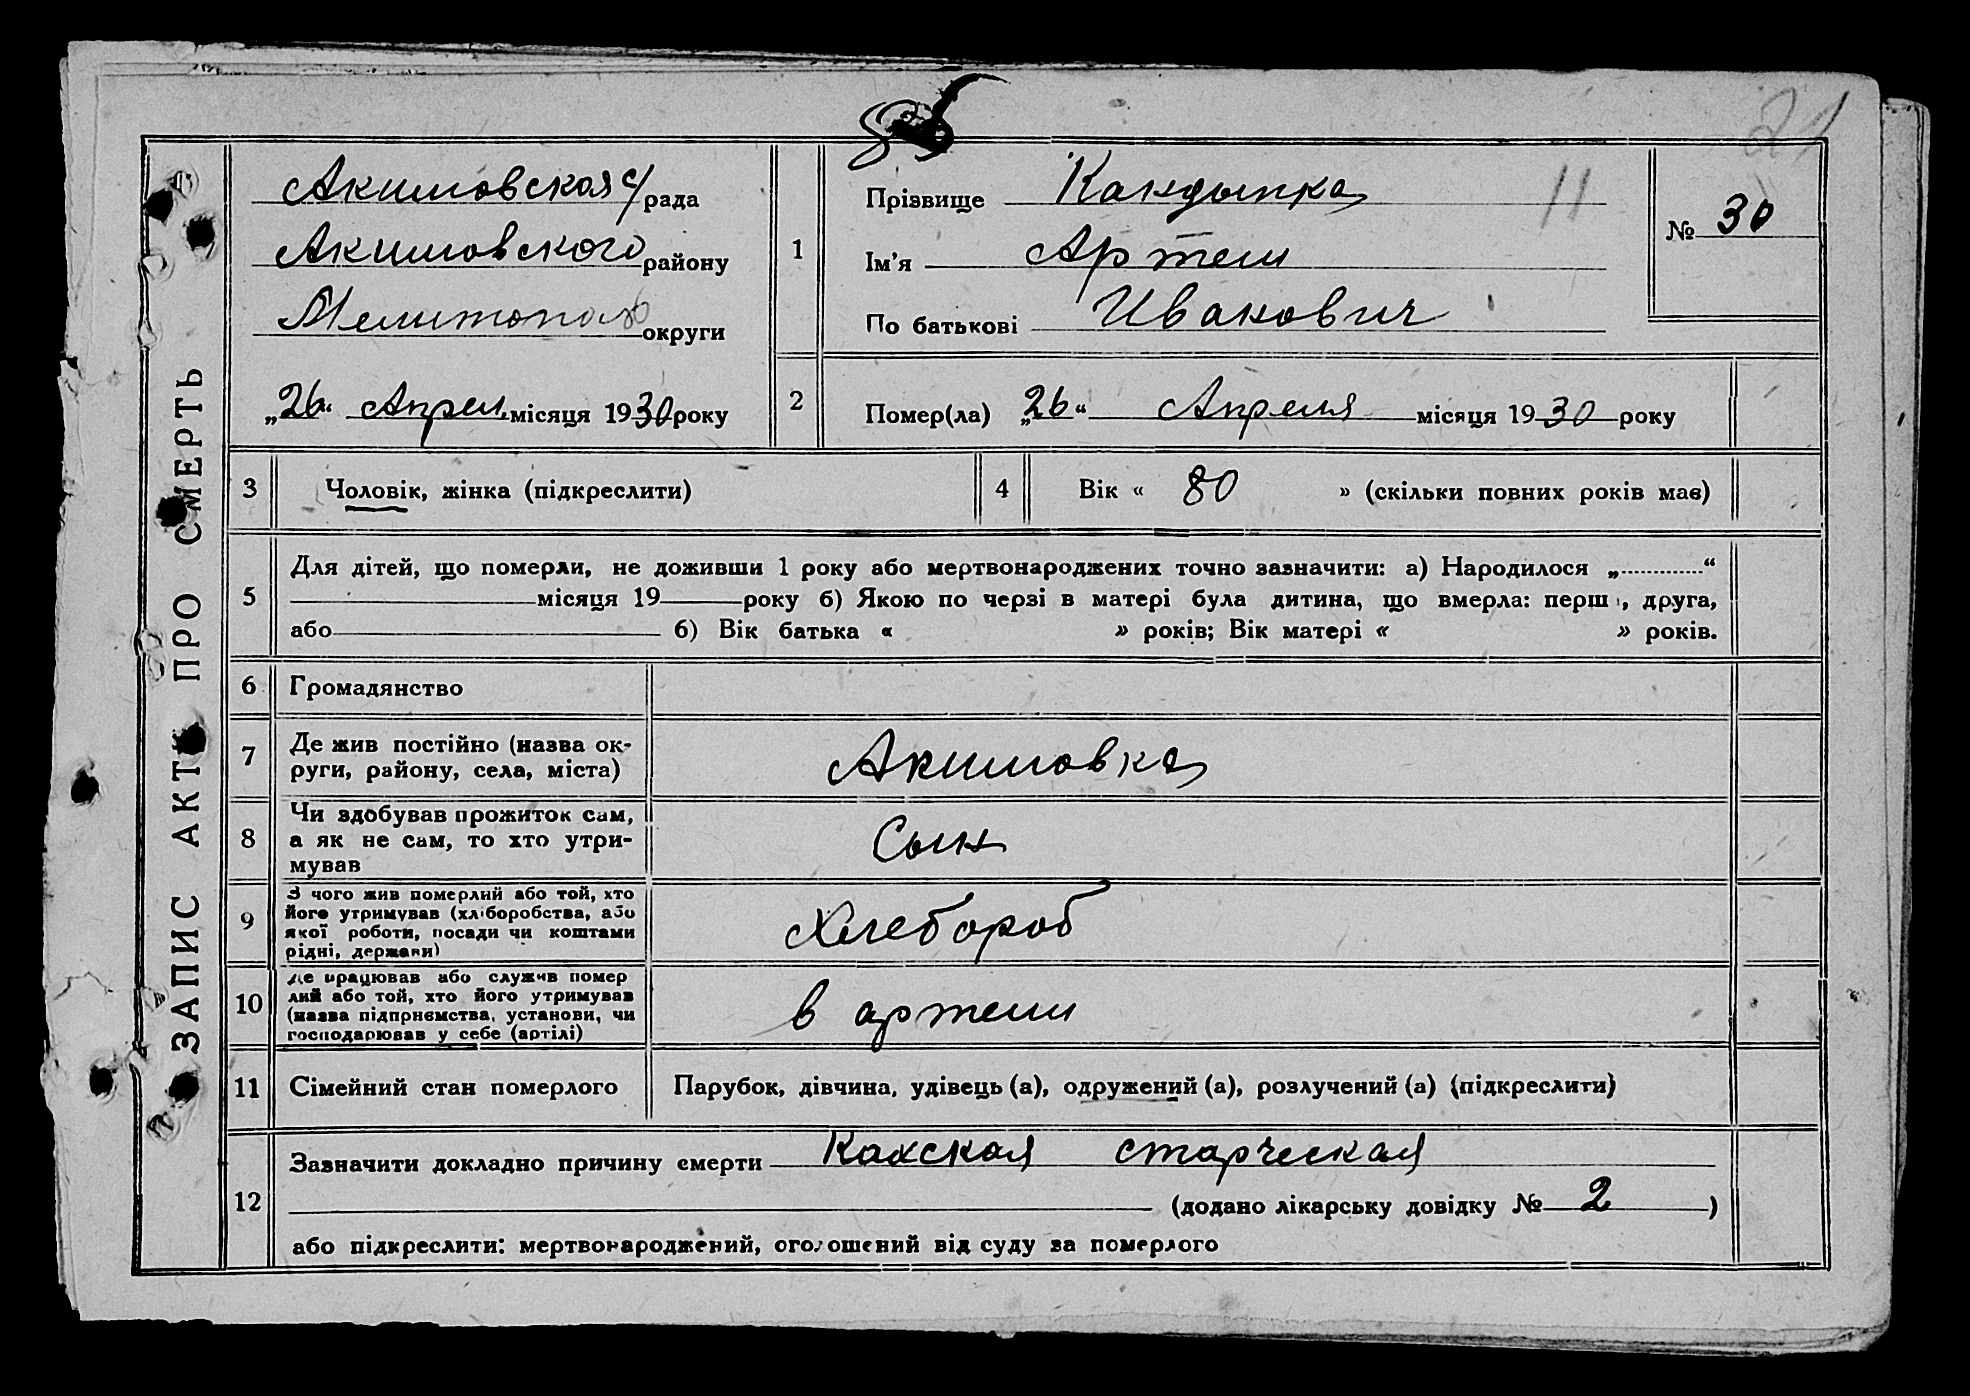 21
ЗАПИС АКТУ ПРО СМЕРТЬ
Акимовская с/рада
Акимовского району
Мелитопол округи
„26“ Апрел місяця 1930 року
1
Прізвище Кандыпка 11
Ім'я Артем
По батькові Иванович
№ 30
2
Помер(ла) „26“ Апреля місяця 1930 року
3 Чоловік, жінка (підкреслити)
4 Вік « 80 » (скільки повних років має)
5
Для дітей, що померли, не доживши 1 року або мертвонароджених точно зазначити: а) Народилося „............“
місяця 19 року б) Якою по черзі в матері була дитина, що вмерла: перш, друга,
або б) Вік батька « » років; Вік матері « » років.
6 Громадянство
7 Де жив постійно (назва ок-
руги, району, села, міста)
Акимовка
8 Чи здобував прожиток сам,
а як не сам, то хто утри-
мував
Сын
9 З чого жив померлий або той, хто
його утримував (хліборобства, або
якої роботи, посади чи коштами
рідні, держави)
Хлебороб
10 Де працював або служив помер
лий або той, хто його утримував
(назва підприємства, установи, чи
господарював у себе (артілі)
в артели
11 Сімейний стан померлого
Парубок, дівчина, удівець (а), одружений (а), розлучений (а) (підкреслити)
12
Зазначити докладно причину смерти старческая
(додано лікарську довідку № 2 )
або підкреслити: мертвонароджений, оголошений від суду за померлого